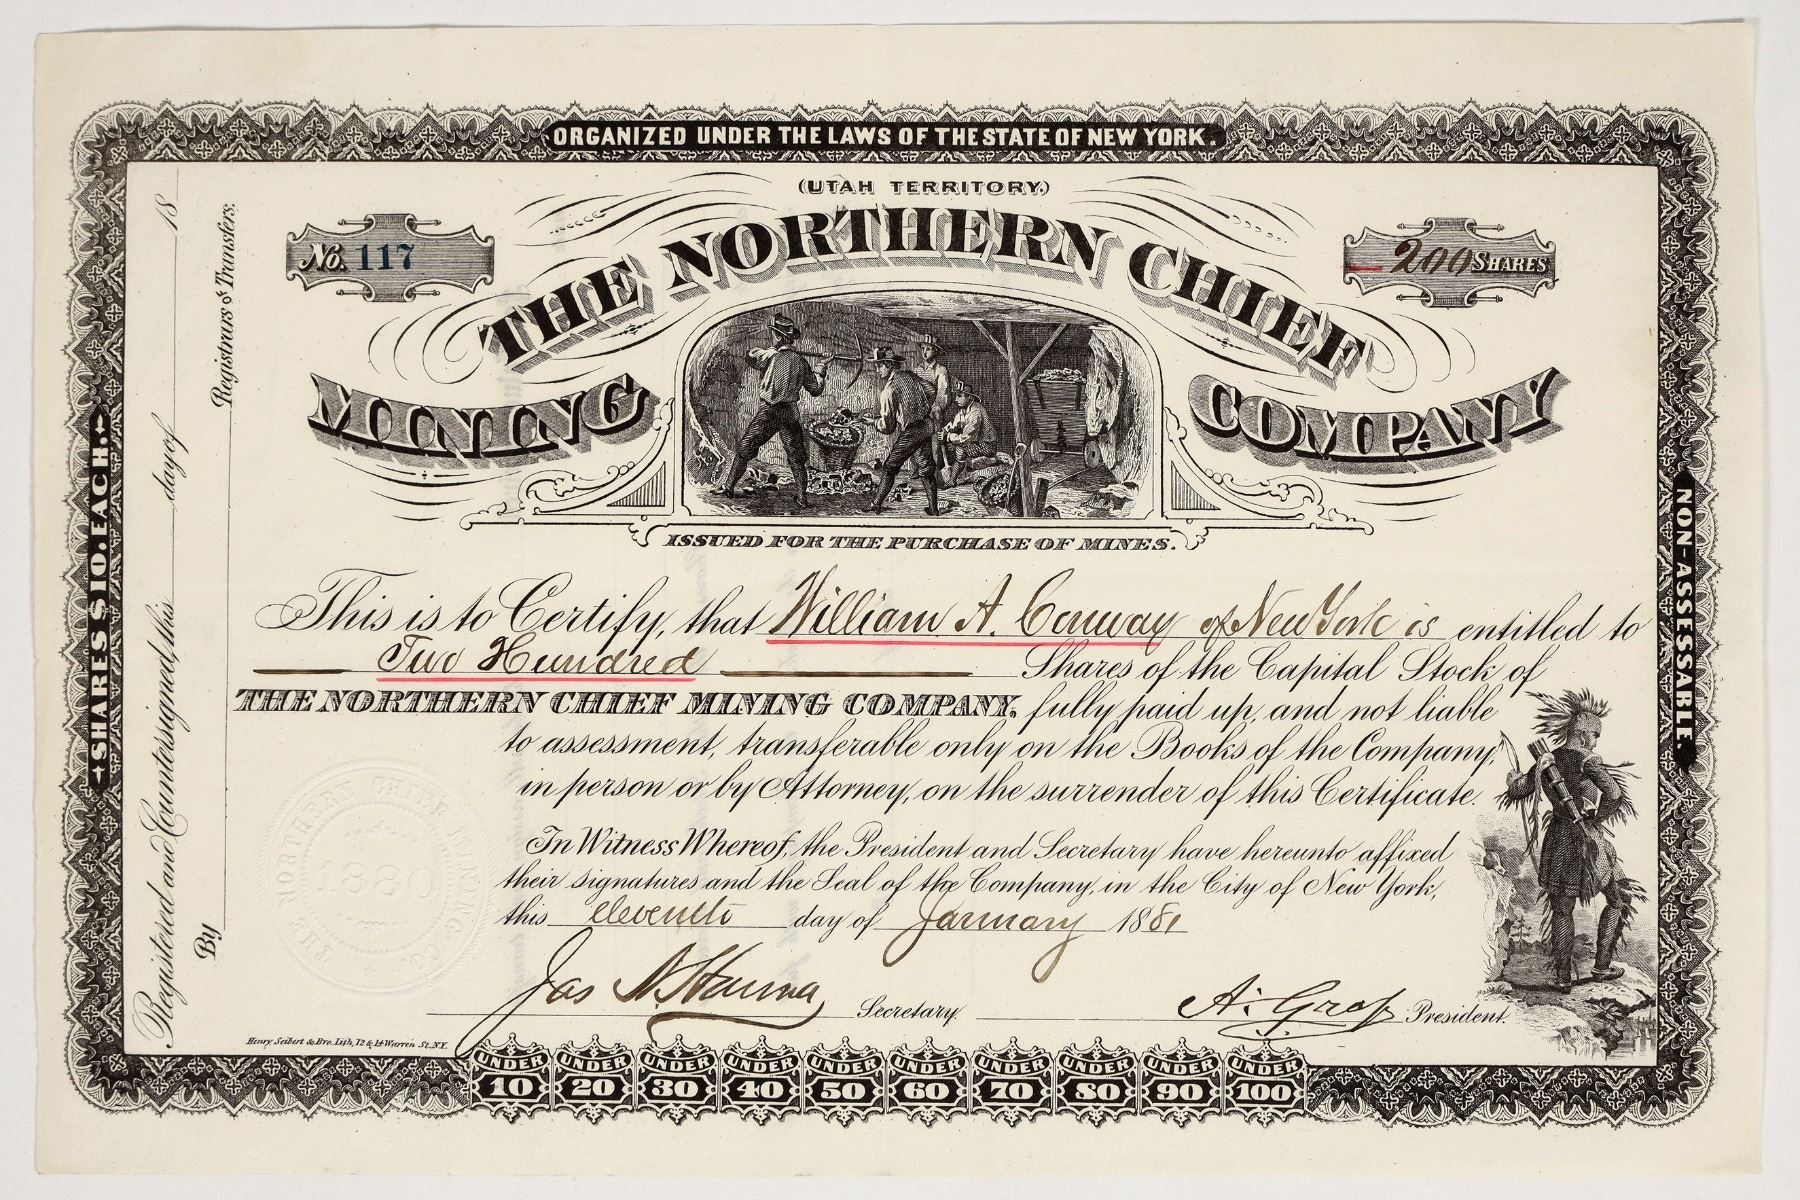 ORGANIZED UNDER THE LAWS OF THE STATE OF NEW YORK.
(UTAH TERRITORY.)
No. 117
200 SHARES
THE NORTHERN CHIEF
MINING COMPANY
ISSUED FOR THE PURCHASE OF MINES.
This is to Certify, that William A. Conway of New York is entitled to
Two Hundred Shares of the Capital Stock of
THE NORTHERN CHIEF MINING COMPANY, fully paid up, and not liable
to assessment, transferable only on the Books of the Company,
in person or by Attorney, on the surrender of this Certificate.
In Witness Whereof, the President and Secretary have hereunto affixed
their signatures and the Seal of the Company, in the City of New York,
this eleventh day of January 1881
Jas Secretary.
A. President.
Henry Seibert & Bro. Lith, 12 & 14 Warren St. N.Y.
UNDER 10 UNDER 20 UNDER 30 UNDER 40 UNDER 50 UNDER 60 UNDER 70 UNDER 80 UNDER 90 UNDER 100
SHARES $10. EACH.
NON-ASSESSABLE.
Registered and Countersigned, this day of 18
Registrars & Transfers.
By
THE NORTHERN CHIEF MINING CO.
1880